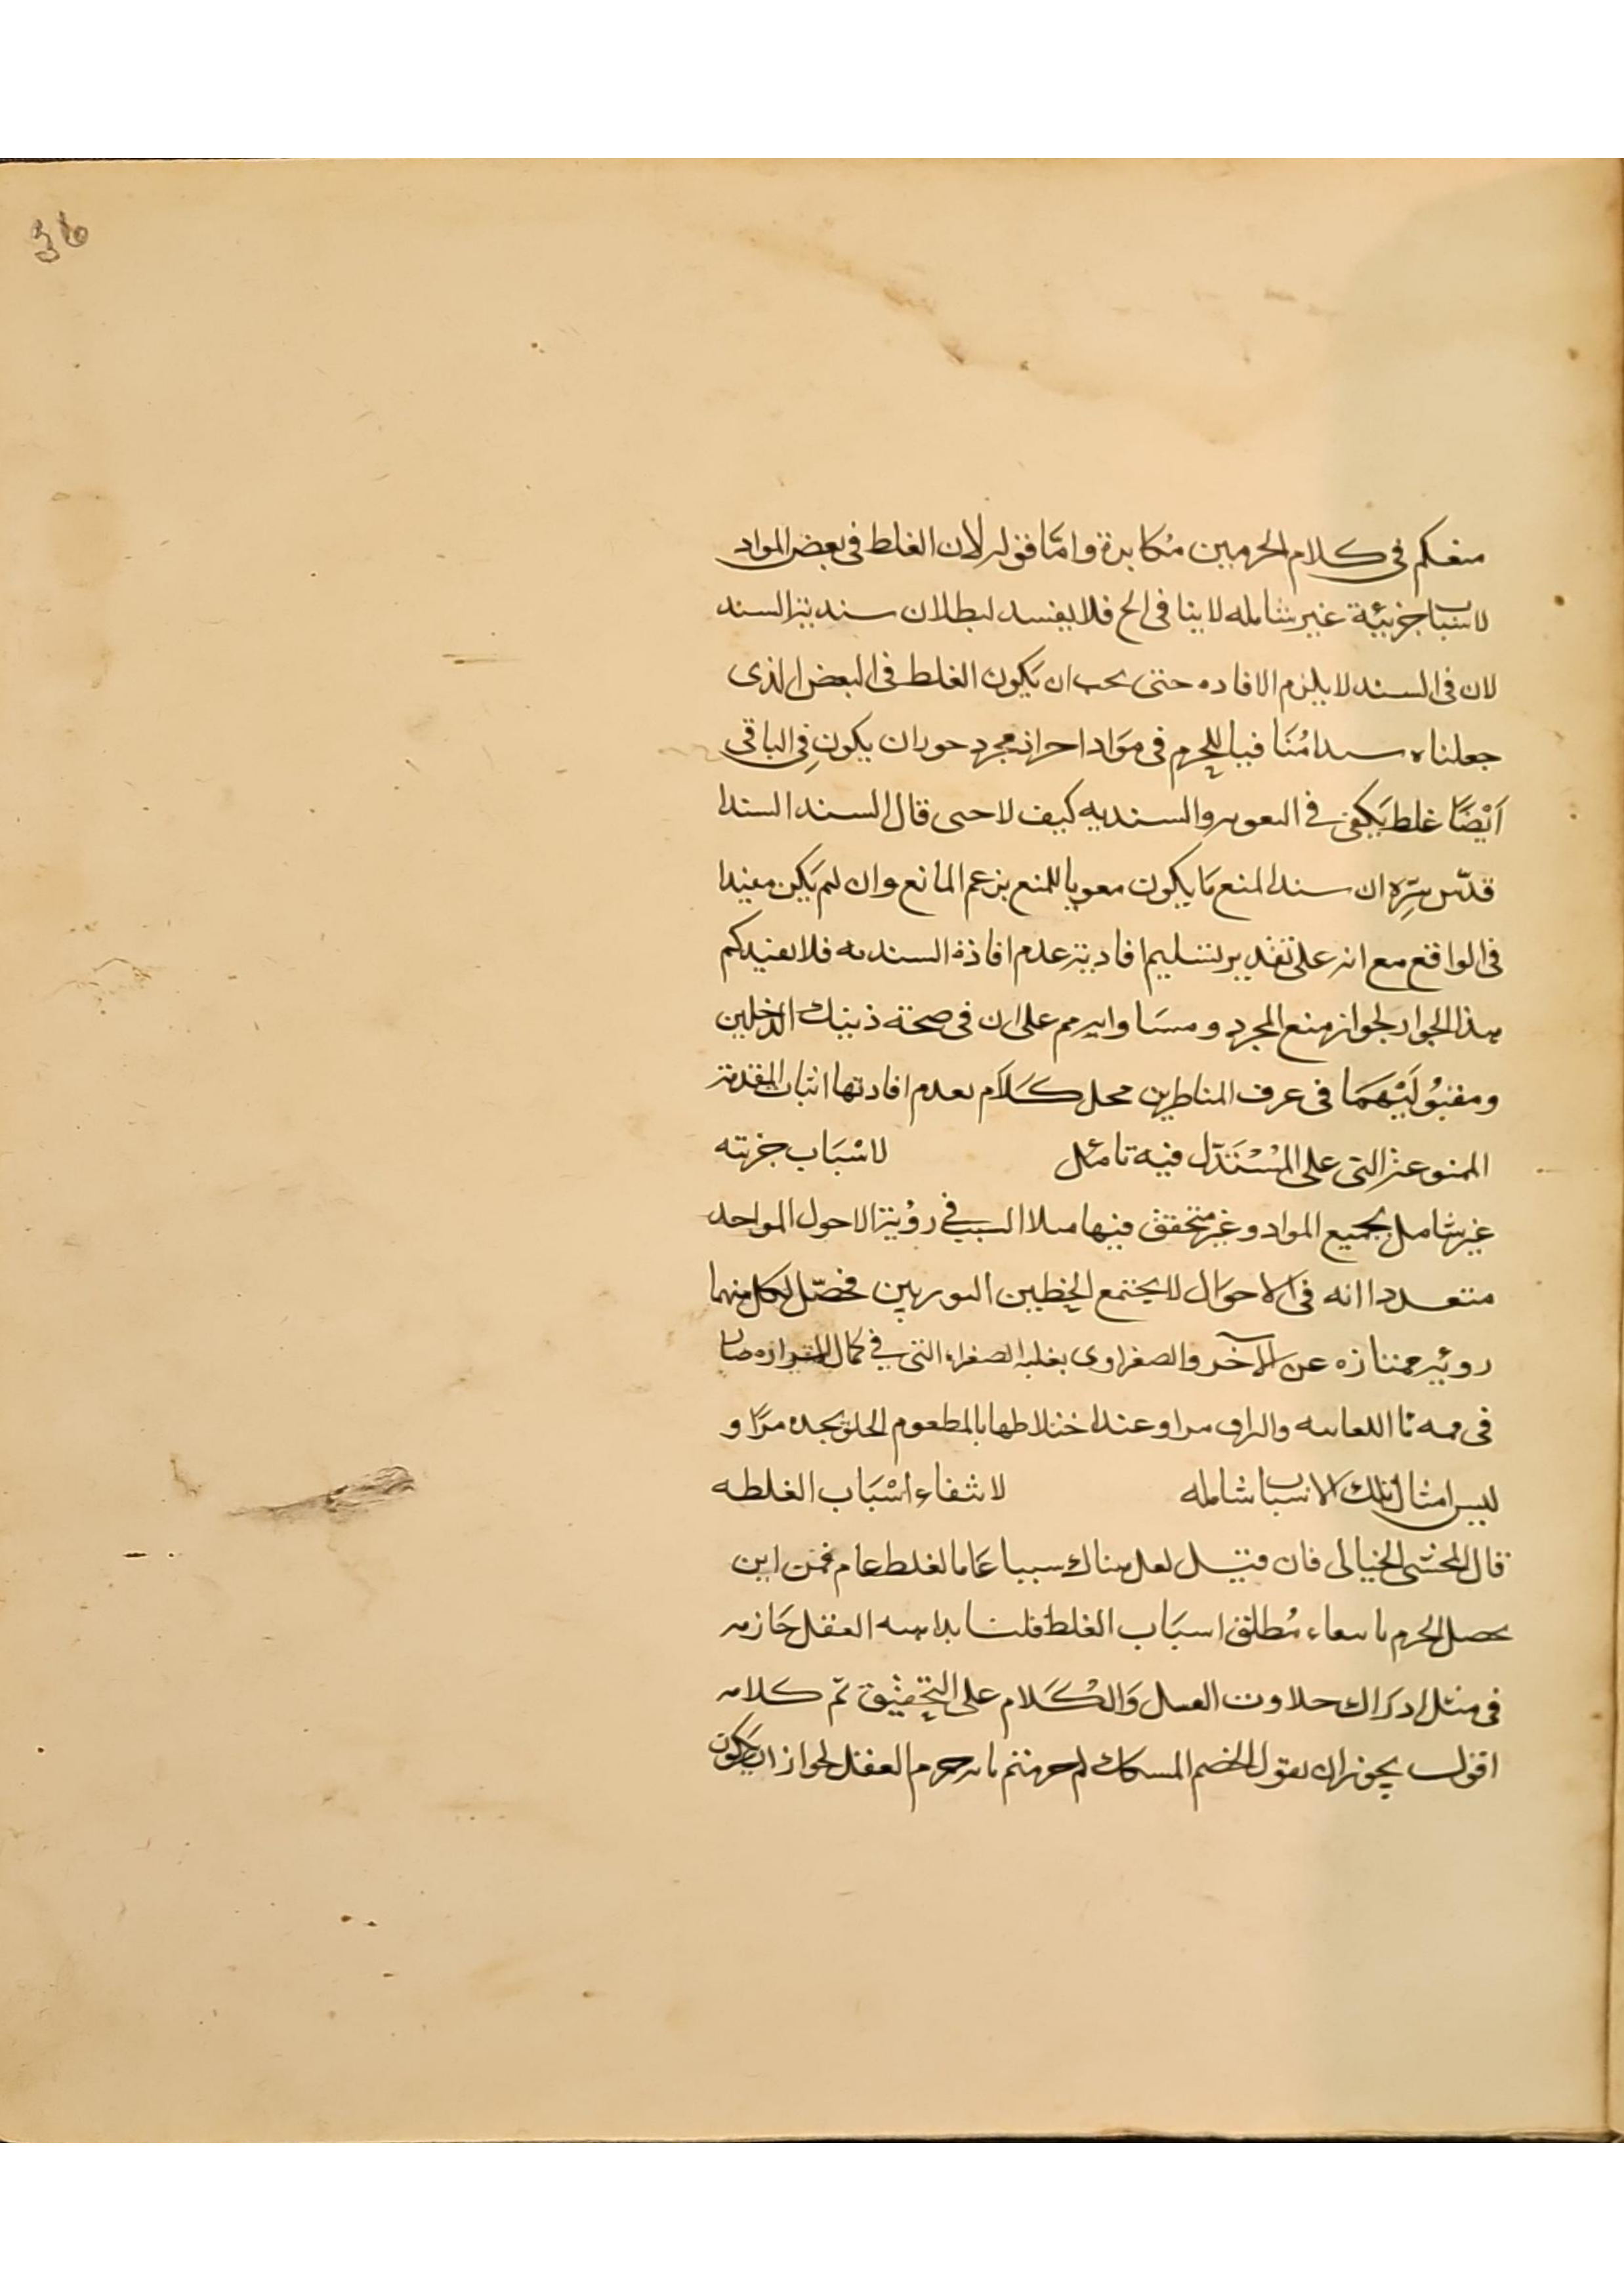 36
منعكم فى كلام الجزميين مكابرة وامّا قوله لان الغلط فى بعض المواد
لاسباب جزئية غير شامله لا ينافى الخ فلا يفسد لبطلان سندية السند
لان فى السند لا يلزم الافاده حتى يجب ان يَكون الغلط فى البعض الذى
جعلناه سندا مُنَافيا للجزم فى مَوَاد اخر اذ مجرد جواز ان يكون فِى الباقى
اَيْضًا غلط يَكفى فى والسنديه كيف لا حتى قال السند السندا
قدّس سِرّه ان سند المنع مَا يكون مقويا للمنع بزعم المانع وان لم يَكن مفيدا
فى الواقع مع انه على تقدير تسليم افادية عدم افادة السنديه فلا يفيدكم
هذا الجواب لجواز منع المجرد و على ان فى صحة ذينك الدخلين
ومقبُولَيْهَمَا فى عرف المناظرين محل كَلَام لعدم افادتها اثبات المقدمة
الممنوعة التى على المُسْتَدِّل فيه تامئل لاسْبَاب جزئته
غير شامل بجميع المواد وغير متحقق فيها مثلا السبب فى روُية الاحول المواحد
متعددا انه فى الاحوَال لا يجتمع الخطين النوريين فحصّل لكل منهما
روئيه ممتازه عن الآخر والصفراوى بغلبة الصفراء التى فى كمال
فى فمه عند اختلاطها بالمطعوم الحلو يجده مرّا و
ليس امثال تلك الاسباب شامله لانتفاء اسْبَاب الغلطه
قال المحشى الخيالى فان قيل لعل هناك سببا عَاما لغلط عام فمن اين
يحصل الجزم بانتفاء مُطلق اسبَاب الغلط قلنا بداهة العقل جَازمه
فى مثل ادرَاك حلاوت العسل وَالكَلَام على التحقيق تمّ كلامه
اقول يجوز ان يقول الخصم العقل لجواز ان يَكون